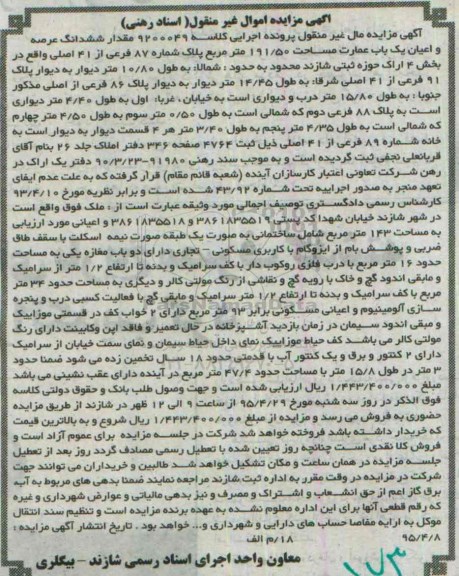 آگهی مزایده اموال غیر منقول( اسناد رهنی)
آگهی مزایده مال غیر منقول پرونده اجرایی کلاسه ۹۲۰۰۰۴۹ مقدار ششدانگ عرصه
و اعیان یک باب عمارت مساحت ۱۹۱/۵۰ متر مربع پلاک شماره ۸۷ فرعی از ۴۱ اصلی واقع در
بخش ۴ اراک حوزه ثبتی شازند محدود به حدود : شمالا: به طول ۱۰/۸۰ متر دیوار به دیوار پلاک
۹۱ فرعی از ۴۱ اصلی شرقا: به طول ۱۴/۴۵ متر دیوار به دیوار پلاک ۸۶ فرعی از اصلی مذکور
جنوبا : به طول ۱۵/۸۰ متر درب و دیواری است به خیابان ، غربا: اول به طول ۴/۴۰ متر دیواری
است به پلاک ۸۸ فرعی دوم که شمالی است به طول ۰/۵۰ متر سوم به طول ۴/۵۰ متر چهارم
که شمالی است به طول ۴/۳۵ متر پنجم به طول ۳/۴۰ متر هر ۴ قسمت دیوار به دیوار است به
خانه شماره ۸۹ فرعی از ۴۱ اصلی ذیل ثبت ۴۷۶۴ صفحه ۳۴۶ دفتر املاک جلد ۲۶ بنام آقای
قربانعلی نجفی ثبت گردیده است و به موجب سند رهنی ۹۱۹۸۰-۹۰/۳/۲۳ دفتر یک اراک در
رهن شرکت تعاونی اعتبار کارسازان آینده (شعبه قائم مقام) قرار گرفته که به علت عدم ایفای
تعهد منجر به صدور اجراییه تحت شماره ۴۳/۹۲ شده است و برابر نظریه مورخ ۹۳/۴/۱۰
کارشناس رسمی دادگستری توصیف اجمالی مورد وثیقه عبارت است از : ملک فوق واقع است
در شهر شازند خیابان شهدا کد پستی ۳۸۶۱۸۳۵۵۱۹ و ۳۸۶۱۸۳۵۵۱۸ و اعیانی مورد ارزیابی
به مساحت ۱۴۳ متر مربع شامل ساختمانی به صورت یک طبقه صورت نیمه اسکلت با سقف طاق
ضربی و پوشش بام از ایزوگام با کاربری مسکونی - تجاری دارای دو باب مغازه یکی به مساحت
حدود ۱۶ متر مربع با درب فلزی روکوب دار با کف سرامیک و بدنه تا ارتفاع ۱/۲ متر از سرامیک
و مابقی اندود گچ و خاک با رویه گچ و نقاشی از رنگ مولتی کالر و دیگری به مساحت حدود ۳۴ متر
مربع با کف سرامیک و بدنه تا ارتفاع ۱/۲ متر سرامیک و مابقی گچ با فعالیت کسبی درب و پنجره
سازی آلومینیوم و اعیانی مسکونی برابر ۹۳ متر مربع دارای ۲ خواب کف در قسمتی موزاییک
و مبقی اندود سیمان در زمان بازدید آشپزخانه در حال تعمیر و فاقد اپن وکابینت دارای رنگ
مولتی کالر می باشد کف حیاط موزاییک نمای داخل حیاط سیمان و نمای سمت خیابان از سرامیک
دارای ۲ کنتور و برق و یک کنتور آب با قدمتی حدود ۱۸ سال تخمین زده می شود ضمنا حدود
۳ متر در طول ۱۵/۸ متر با مساحت حدود ۴۷/۴ متر مربع در آینده دارای عقب نشینی می باشد
مبلغ ۱/۴۴۳/۴۰۰/۰۰۰ ریال ارزیابی شده است و جهت وصول طلب بانک و حقوق دولتی کلاسه
فوق الذکر در روز سه شنبه مورخ ۹۵/۴/۲۹ از ساعت ۹ الی ۱۲ ظهر در شازند از طریق مزایده
حضوری به فروش می رسد و مزایده از مبلغ ۱/۴۴۳/۴۰۰/۰۰۰ ریال شروع و به بالاترین قیمت
که خریدار داشته باشد فروخته خواهد شد شرکت در جلسه مزایده برای عموم آزاد است و
فروش کلا نقدی است چنانچه روز تعیین شده با تعطیل رسمی مصادف گردد روز بعد از تعطیل
جلسه مزایده در همان ساعت و مکان تشکیل خواهد شد طالبین و خریداران می توانند جهت
شرکت در مزایده در وقت مقرر به اداره ثبت شازند مراجعه نمایند ضمنا بدهی های مربوط به آب
برق گاز اعم از حق انشعاب و اشتراک و مصرف و نیز بدهی مالیاتی و عوارض شهرداری و غیره
که رقم قطعی آنها برای این اداره معلوم نشده به عهده برنده مزایده است و تنظیم سند انتقال
موکل به ارایه مفاصا حساب های دارایی و شهرداری و... خواهد بود . تاریخ انتشار آگهی مزایده :
۹۵/۴/۸ ۱۸/م الف
معاون واحد اجرای اسناد رسمی شازند – بیگلری
۱۷۳